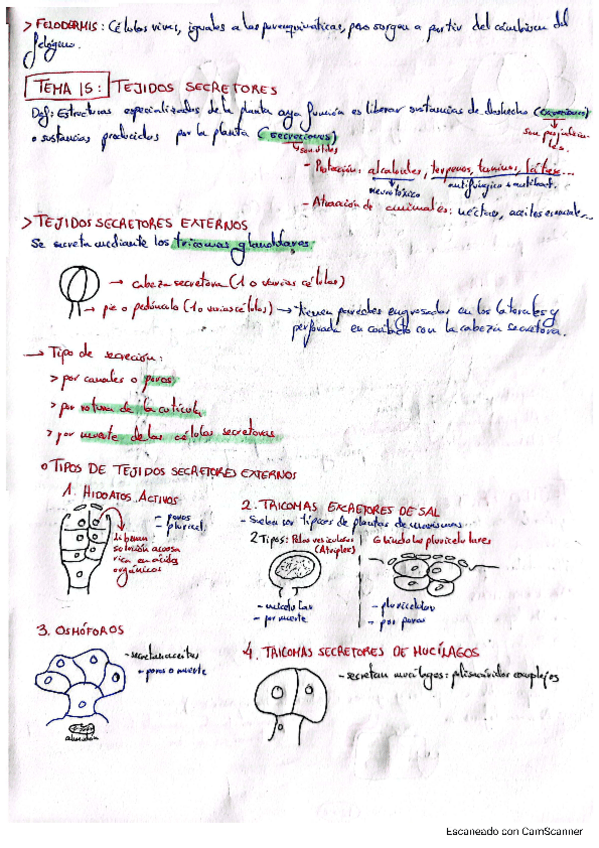 > FELODERMIS: Células vivas, iguales a las parenquimáticas, pero surgen a partir del cámbium del
felógeno.
TEMA 15: TEJIDOS SECRETORES
Def: Estructuras especializadas de la planta cuya función es liberar sustancias de deshecho (excreciones)
o sustancias producidas por la planta (secreciones)
son perjudicia-
les.
son útiles
- Protección: alcaloides, terpenos, taninos, látex...
neurotóxico
antifúngico o antibact.
- Atracción de animales: néctar, aceites esenciales...
> TEJIDOS SECRETORES EXTERNOS
Se secreta mediante los tricomas glandulares:
→ cabeza secretora (1 o varias células)
→ pie o pedúnculo (1 o varias células) → tienen paredes engrosadas en los laterales y
perforada en contacto con la cabeza secretora.
→ Tipo de secreción:
> por canales o poros
> por rotura de la cutícula
> por muerte de las células secretoras
o TIPOS DE TEJIDOS SECRETORES EXTERNOS
1. HIDATOTOS ACTIVOS
- poros
- pluricel.
liberan
solución acuosa
rica en ácidos
orgánicos
2. TRICOMAS EXCRETORES DE SAL
- Suelen ser típicos de plantas de marismas
2 Tipos: Pelos vesiculares
(Atriplex)
Glándulas pluricelulares
- unicelular
- por muerte
- pluricelular
- por poros
3. OSMÓFOROS
- secretan aceites
- poros o muerte
almidón
4. TRICOMAS SECRETORES DE MUCÍLAGOS
- secretan mucílagos: polisacáridos complejos
Escaneado con CamScanner